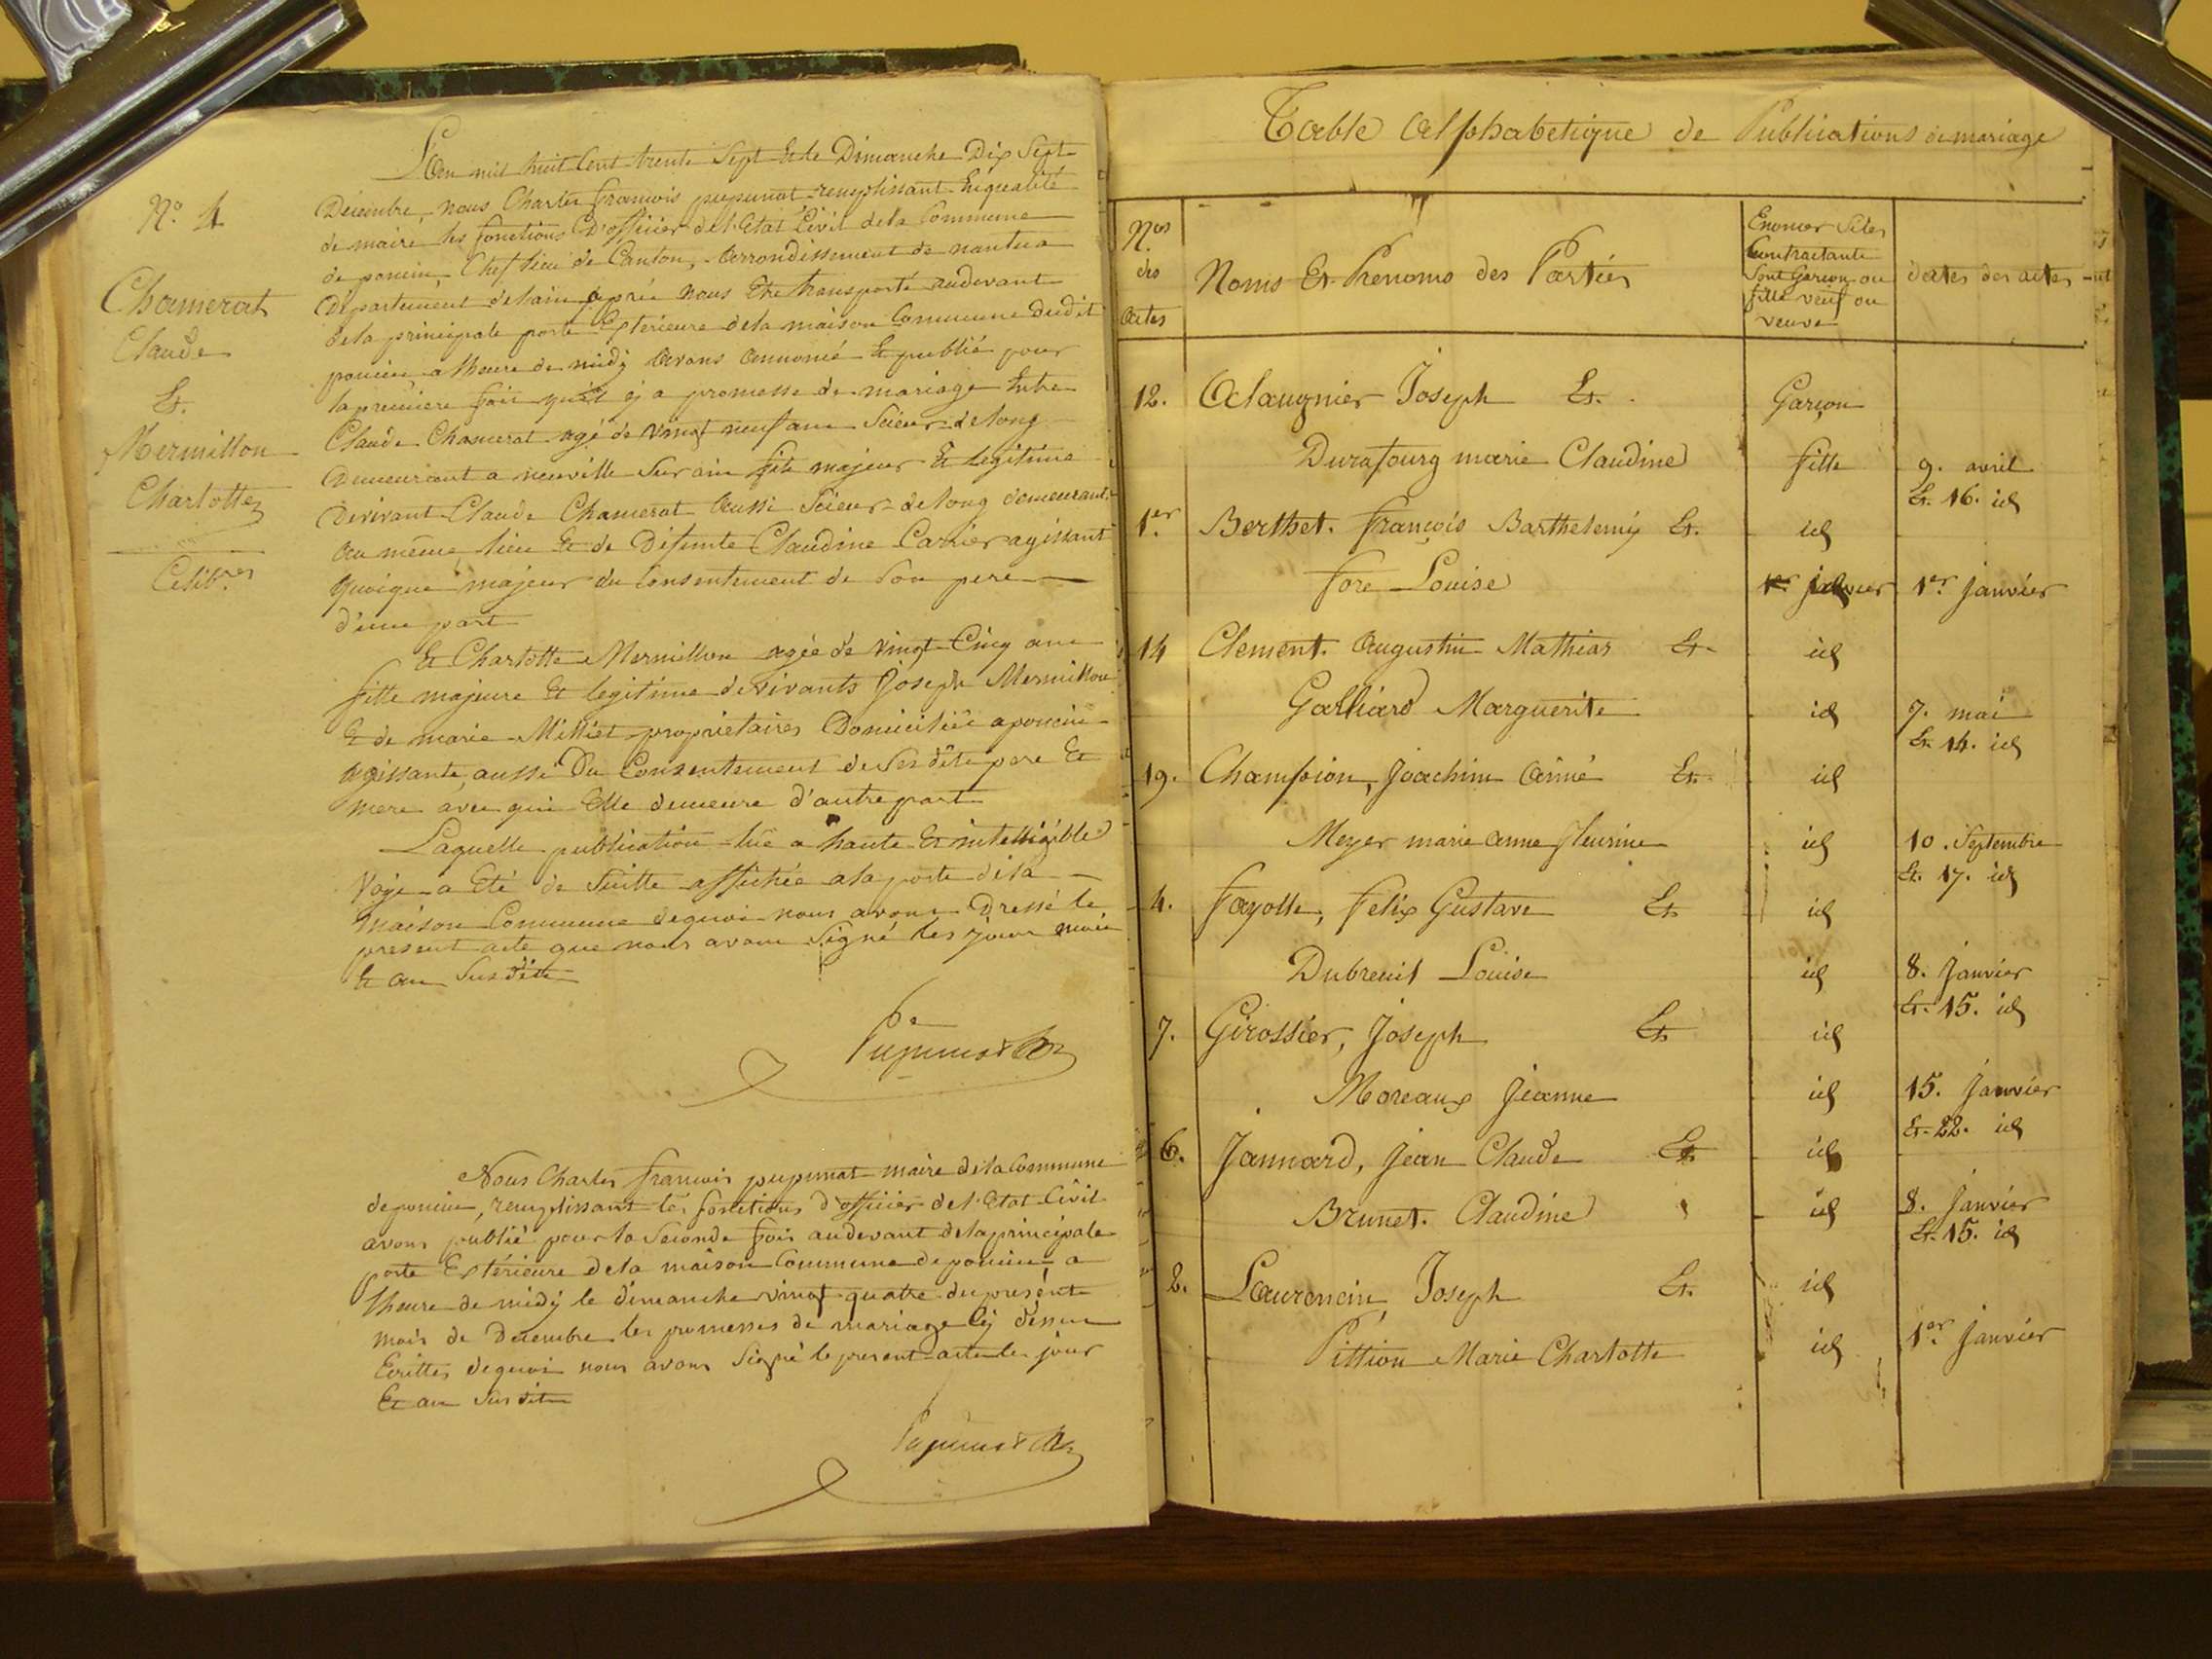 N.o 4
Chamerat
Claude
Et.
Mermillon
Charlotte
Célib.res
L'an mil huit Cent trente Sept Et le Dimanche Dix Sept
Décembre, nous Charles françois pupunat remplissant En qualité
de maire les fonctions D'officier de l'Etat Civil de la Commune
de poncin Chef lieu de Canton, arrondissement de nantua
Département de lain, après nous Etre transporté audevant
de la principale porte Exterieure de la maison Commune dudit
poncin a lheure de midy avons annoncé Et publié pour
la premiere fois qu'il y a promesse de mariage Entre
Claude Chamerat agé de vingt neuf ans Scieur de long
Demeurant a neuville Sur ain fils majeur Et legitime
De vivant Claude Chamerat aussi Scieur de long demeurant
au même lieu Et de Defunte Claudine Carrier agissant
quoique majeur du Consentement de Son pere
d'une part
Et Charlotte Mermillon agée de vingt Cinq ans
fille majeure Et legitime de vivants Joseph Mermillon
Et de marie Milliet proprietaires Domiciliés a poncin
agissante aussi Du Consentement de Ses dits pere Et
mere avec qui Elle demeure d'autre part
Laquelle publication lüe a haute Et intelligible
Voje a Eté de Suitte affichée a la porte de la
maison Commune dequoi nous avons Dressé le
present acte que nous avons Signé les jour mois
Et an Susdits
Pupunat
Nous Charles françois pupunat maire de la Commune
de poncin, remplissant les fonctions d'officier de l'Etat Civil
avons publié pour la Seconde fois audevant de la principale
porte Extérieure de la maison Commune de poncin, a
lheure de midy le dimanche vingt quatre du présent
mois de Decembre les promesses de mariage Cy déssus
Ecrittes dequoi nous avons Signé le present acte les jour
Et an Susdits
Pupunat
Table Alphabetique de Publications de mariage
Nos des Actes
Noms Et Prenoms des Parties
Enoncer Si les Contractants Sont Garçon ou fille veuf ou veuve
dates des actes
12. Alaugnier Joseph Et. Garçon
Durafourg marie Claudine fille 9. avril
Et. 16. id
1er. Berthet. françois Barthelemy Et. id
fore Louise id 1er janvier
14 Clement. Augustin Mathias Et id
Galliard Marguerite id 7. mai
Et. 14. id
19. Champion, Joachim Aimé Et id
Meyer marie anne fleurine id 10. Septembre
Et. 17. id
4. fayolle, felix Gustave Et id
Dubreuil Louise id 8. Janvier
Et. 15. id
7. Girossier, Joseph Et id
Moreaux Jeanne id 15. Janvier
Et. 22. id
6. Jannard, jean Claude Et id
Brunet. Claudine id 8. Janvier
Et. 15. id
2. Laurencin, Joseph Et. id
Pittion Marie Charlotte id 1er. Janvier